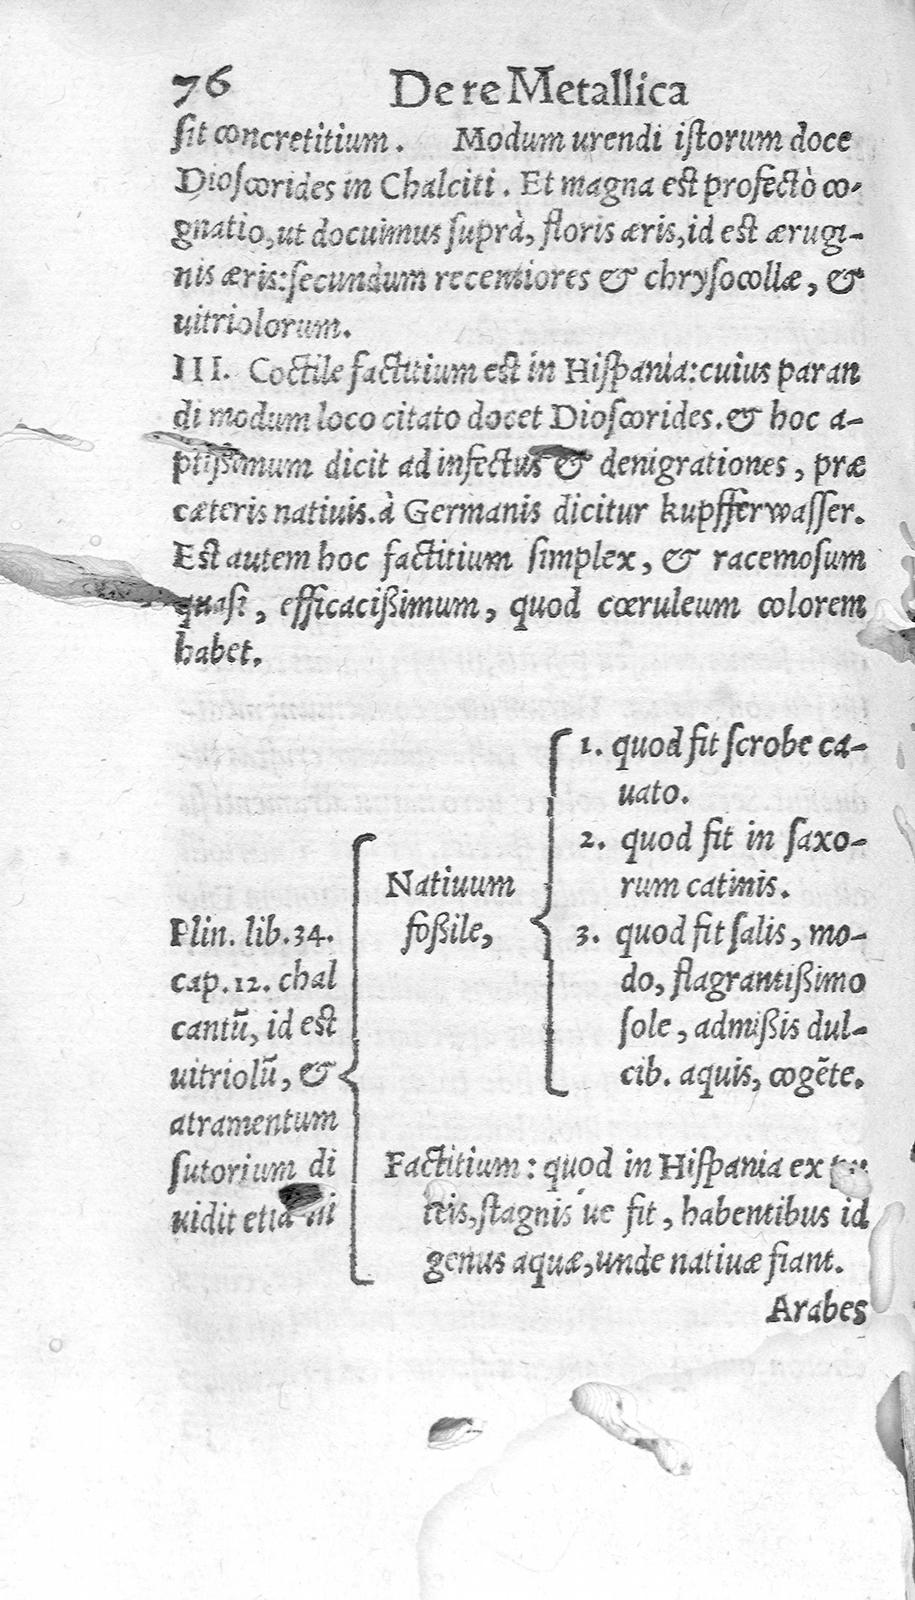 76 De re Metallica
ſit concretitium. Modum urendi iſtorum doce
Dioſcorides in Chalciti. Et magna est profectò co-
gnatio, ut docuimus ſuprà, floris æris, id est ærugi-
nis æris: ſecundum recentiores & chryſocollæ, &
uitriolorum.
III. Coctile factitium est in Hiſpania: cuius paran
di modum loco citato docet Dioſcorides. & hoc a-
ptiſſimum dicit ad infectus & denigrationes, præ
cæteris natiuis. à Germanis dicitur kupfferwaſſer.
Est autem hoc factitium ſimplex, & racemoſum
quaſi, efficacißimum, quod cœruleum colorem
habet.
Plin. lib. 34.
cap. 12. chal
cantū, id est
uitriolū, &
atramentum
ſutorium di
uidit etiā in
Natiuum
foßile,
1. quod fit ſcrobe ca-
uato.
2. quod fit in ſaxo-
rum catinis.
3. quod fit ſalis, mo-
do, flagrantißimo
ſole, admißis dul-
cib. aquis, cogēte.
Factitium: quod in Hiſpania ex
teis, ſtagnis ue fit, habentibus id
genus aquæ, unde natiuæ fiant.
Arabes